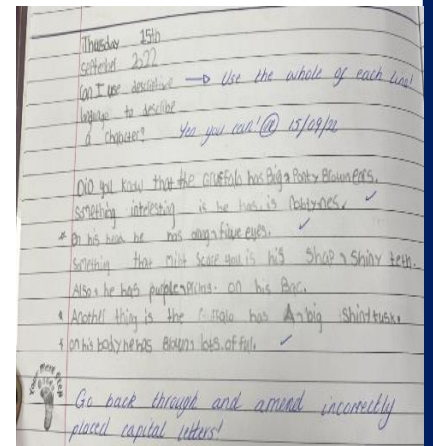 Thursday 15th
September 2022
Can I use descriptive → Use the whole of each line!
language to describe
a character? Yes you can! 15/09/22
Did you know that the Gruffalo has Big, Ponty Brown ears.
Something interesting is he has is nobblynes. ✓
On his head he has orange five eyes. ✓
Something that mint scare you is his Shap, Shiny teeth.
Also, he has purple, on his Bac.
Another thing is the has A, big Shiny tusk.
on his body he has Brown, lots of full. ✓
Go back through and amend incorrectly
placed capital letters!